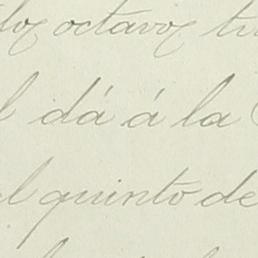 los octavos
dá á la
el quinto de